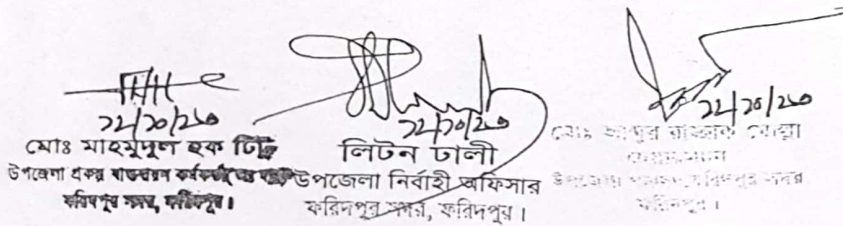 ২২/১০/২৩
মোঃ মাহমুদুল হক
উপজেলা প্রকল্প বাস্তবায়ন
ফরিদপুর সদর, ফরিদপুর।
২২/১০/২৩
লিটন ঢালী
উপজেলা নির্বাহী অফিসার
ফরিদপুর সদর, ফরিদপুর।
২২/১০/২৩
মোঃ আব্দুর রাজ্জাক মোল্লা
উপজেলা পরিষদ, ফরিদপুর সদর
ফরিদপুর।